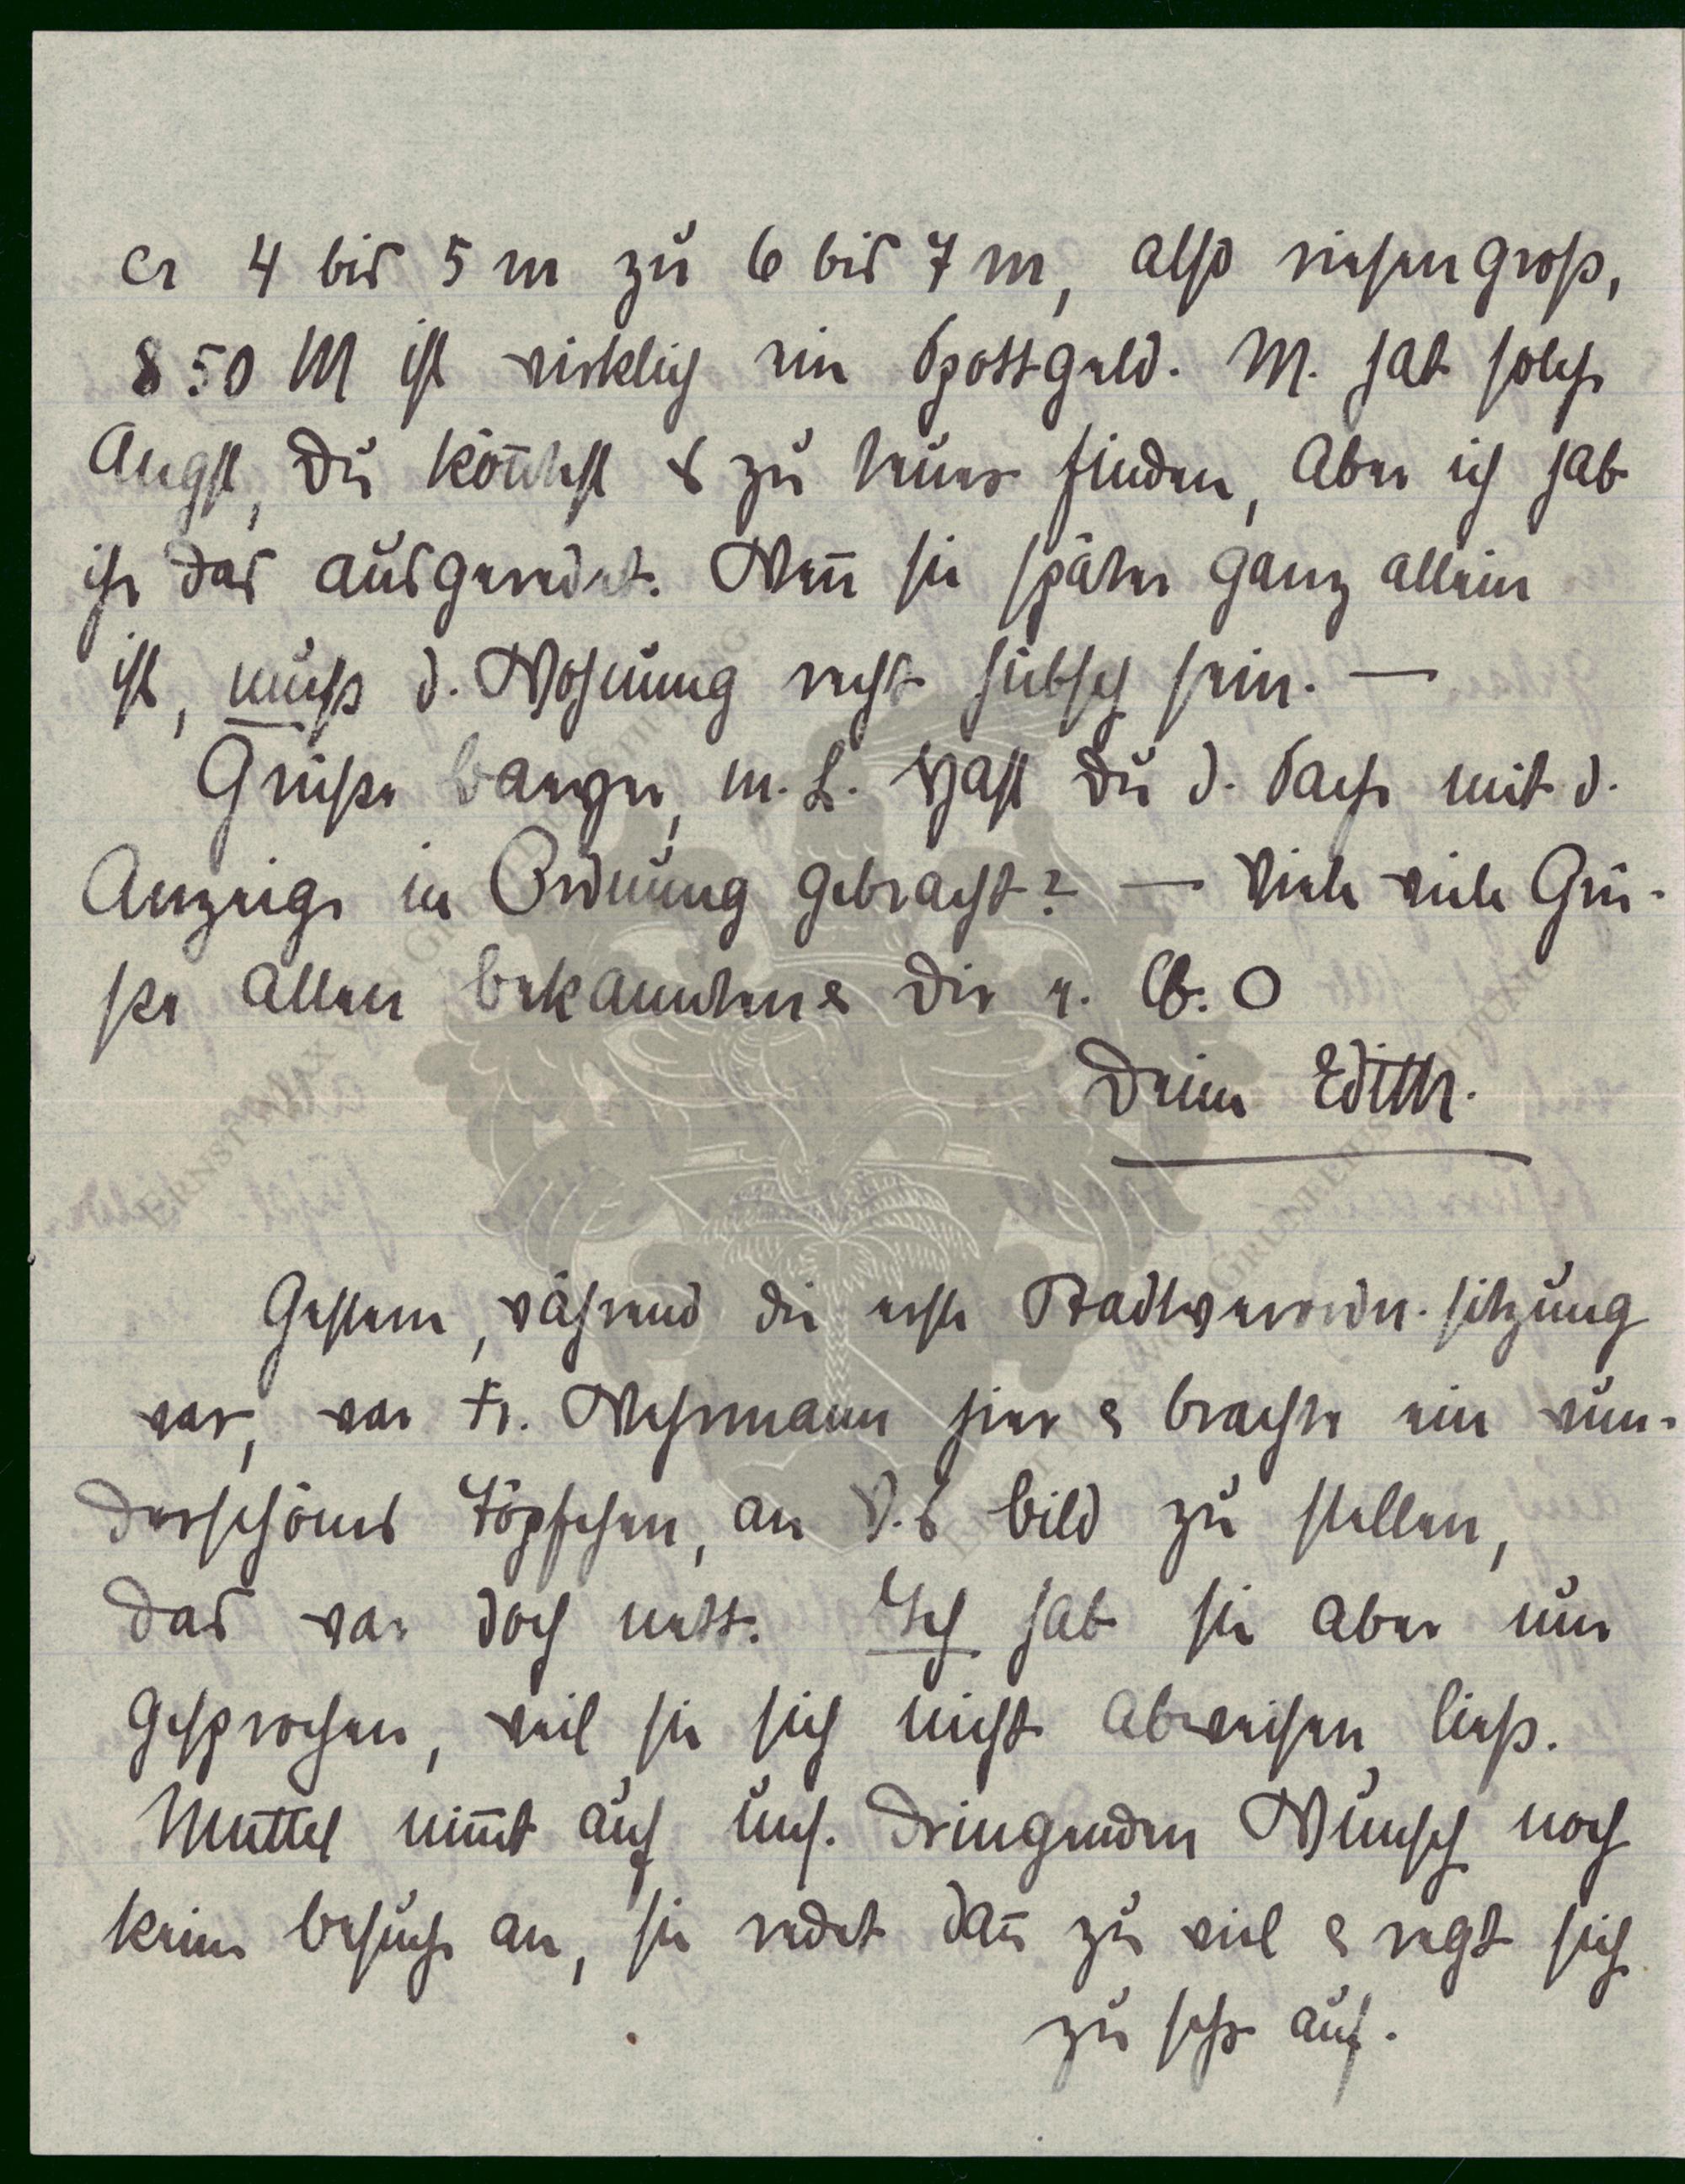 ca 4 bis 5 m zu 6 bis 7 m, also riesengroß,
850 M ist wirklich ein Spottgeld. M. hat solche
Angst, Du kön̄test es zu teuer finden, aber ich hab
ihr das ausgeredet. Wen̄ sie später ganz allein
ist, muß d. Wohnung recht hübsch sein. —
Grüße Banzer, m. L. Hast Du d. Sache mit d.
Anzeige in Ordnung gebracht? — Viele viele Grü-
ße allen Bekannten & Dir e. lb. O
Deine Edith.
Gestern, während die erste Stadtverordn.sitzung
war, war Fr. Wehrmann hier & brachte ein wun-
derschönes Töpfchen, an V.s Bild zu stellen,
das war doch nett. Ich hab sie aber nur
gesprochen, weil sie sich nicht abweisen ließ.
Muttel nim̄t auf uns. dringenden Wunsch noch
keine Besuche an, sie redet dan̄ zu viel & regt sich
zu sehr auf.
ERNST MAX VON GRUNELIUS-STIFTUNG
ERNST MAX VON GRUNELIUS-STIFTUNG